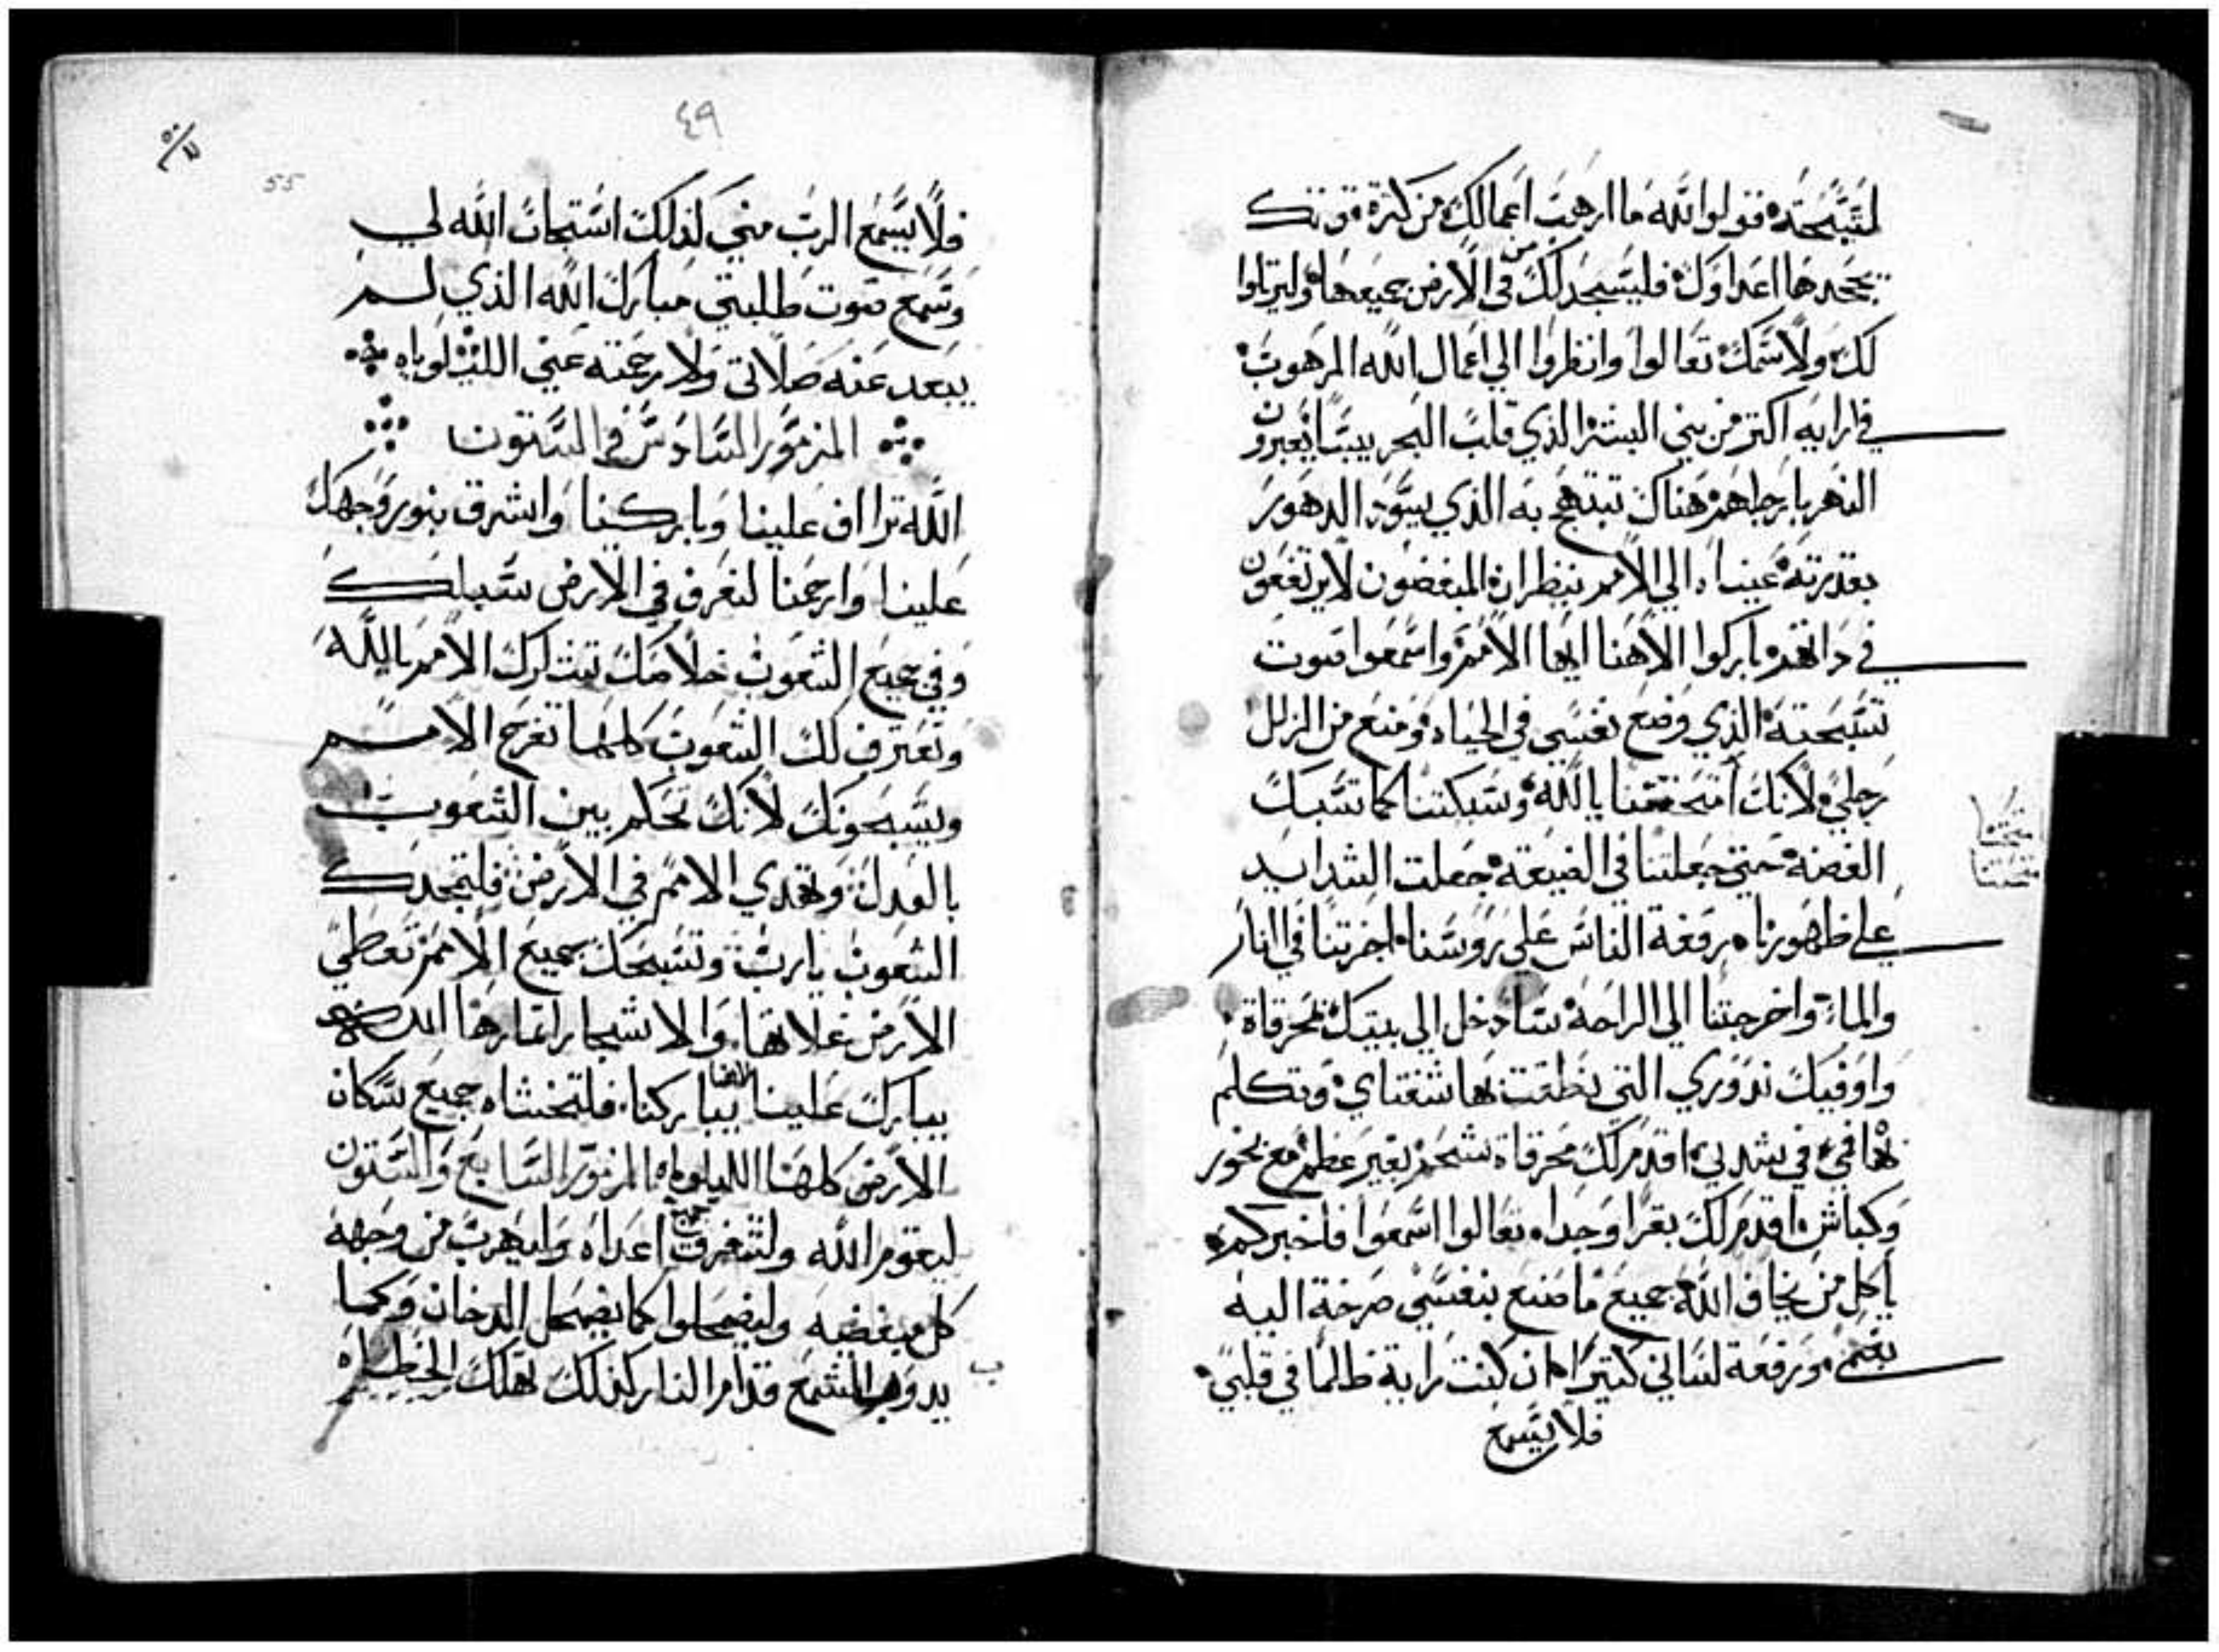 لتسبحته قولوا لله ما ارهب اعمالك من كثرة قوتك
يجحدها اعداوك فليسجد لك من في الارض جميعها وليرتلوا
لك ولاسمك تعالوا وانظروا الي اعمال الله المرهوب
في ارايه اكتر من بني البشر الذي قلب البحر يبسا يعبرون
النهر بارجلهم هناك نبتهج به الذي يسود الدهور
بقدرته عيناه الي الامم ينظران المبغضون لا يرتفعون
في داتهم باركوا الاهنا ايها الامم واسمعوا صوت
تسبحته الذي وضع نفسي في الحياه ومنع من الزلل
رجلي لانك امتحنتنا يا الله وسبكتنا كما تسبك
الفضه حتي جعلتنا في الضيقه جعلت الشدايد
علي ظهورنا رفعة الناس علي روسنا اجزتنا في النار
والماء واخرجتنا الي الراحه سادخل الي بيتك بمحرقاة
واوفيك ندوري التي نطقت بها شفتاي وتكلم
بها في في شدتي اقدم لك محرقاة شحم بغير عظم مع بخور
وكباش اقدم لك بقرا وجدا تعالوا اسمعوا فاخبركم
يا كل من يخاف الله جميع ما صنع بنفسي صرخة اليه
بفمي ورفعة لساني كتيرا ان كنت راية ظالما في قلبي
فلا يسمع
٤٩
55
فلا يسمع الرب مني لذلك استجاب الله لي
وسمع صوت طلبتي مبارك الله الذي لم
يبعد عنه صلاتي ولا رحمته عني الليلوياه
المزمور السادس والستون
الله تراف علينا وباركنا واشرق بنور وجهك
علينا وارحمنا لنعرف في الارض سبلك
وفي جميع الشعوب خلاصك تبارك الامم يا الله
وتعترف لك الشعوب كلها تفرح الامم
ويسبحونك لانك تحكم بين الشعوب
بالعدل وتهدي الامم في الارض فلتمجدك
الشعوب يا رب وتسبحك جميع الامم تعطي
الارض غلاتها والاشجار اتمارها الله
يبارك علينا يباركنا فلتخشاه جميع سكان
الارض كلها الليلوياه المزمور السابع والستون
ليقوم الله ولتتفرق جميع اعداه وليهرب من وجهه
كل مبغضيه وليضمحلوا كما يضمحل الدخان وكما
يدوب الشمع قدام النار كذلك تهلك الخطاه